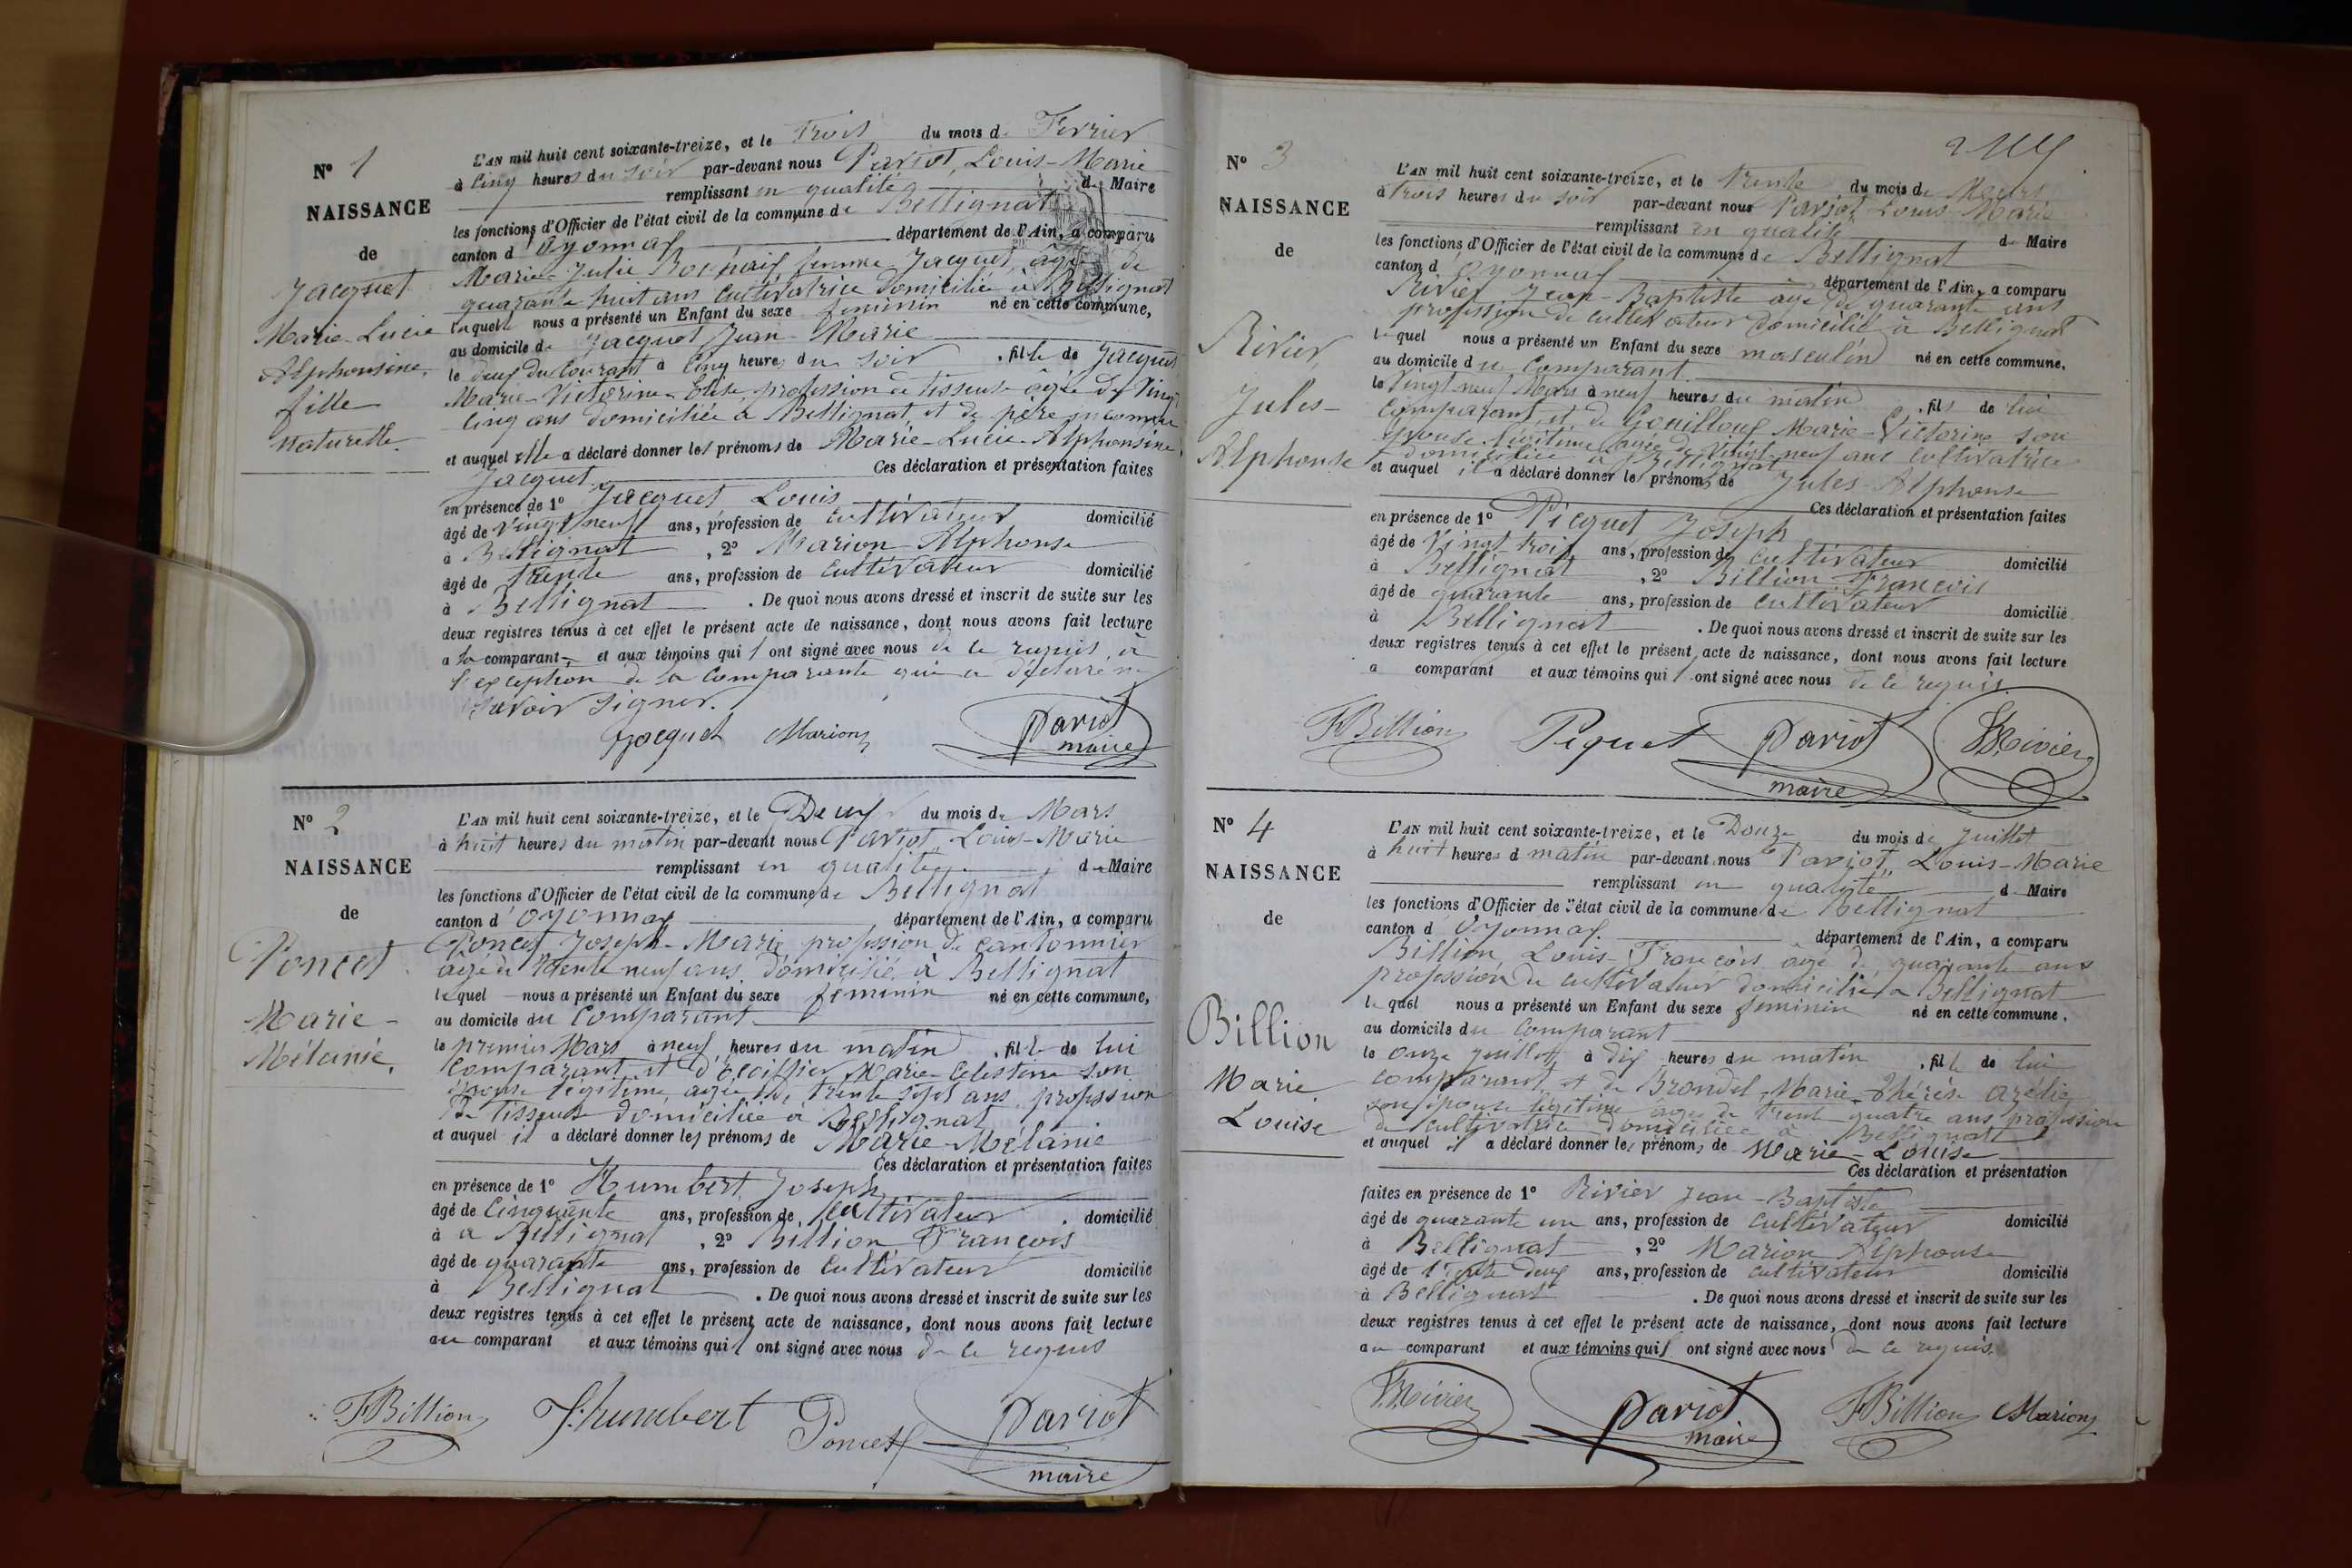 N° 1
NAISSANCE
de
Jacquet
Marie-Lucie
Alphonsine
fille
naturelle
L'AN mil huit cent soixante-treize, et le Trois du mois de Fevrier
à Cinq heures du soir par-devant nous Pariot, Louis-Marie
remplissant en qualité de Maire
les fonctions d'Officier de l'état civil de la commune de Bellignat
canton d'Oyonnax département de l'Ain, a comparu
Marie-Julie femme Jacquet, âgée de
quarante huit ans cultivatrice domiciliée à Bellignat
laquelle nous a présenté un Enfant du sexe feminin né en cette commune,
au domicile de Jacquet Jean-Marie
le deux du courant à Cinq heures du soir, fille de Jacquet
Marie-Victorine-Elise, profession de tisseuse âgée de vingt
cinq ans domiciliée à Bellignat, et de père inconnu
et auquel elle a déclaré donner les prénoms de Marie-Lucie-Alphonsine
Jacquet Ces déclaration et présentation faites
en présence de 1° Jacquet Louis
âgé de vingt neuf ans, profession de cultivateur domicilié
à Bellignat, 2° Marion Alphonse
âgé de trente ans, profession de cultivateur domicilié
à Bellignat. De quoi nous avons dressé et inscrit de suite sur les
deux registres tenus à cet effet le présent acte de naissance, dont nous avons fait lecture
a la comparante et aux témoins qui ont signé avec nous de ce requis, à
l'exception de la comparante qui a déclaré ne
savoir signer.
Jacquet Marion Pariot
maire
N° 2
NAISSANCE
de
Poncet
Marie-
Mélanie.
L'AN mil huit cent soixante-treize, et le Deux du mois de Mars
à huit heures du matin par-devant nous Pariot, Louis-Marie
remplissant en qualité de Maire
les fonctions d'Officier de l'état civil de la commune de Bellignat
canton d'Oyonnax département de l'Ain, a comparu
Poncet Joseph-Marie profession de cantonnier
âgé de trente neuf ans, domicilié à Bellignat
lequel nous a présenté un Enfant du sexe feminin né en cette commune,
au domicile du Comparant
le premier Mars à neuf heures du matin, fille de lui
Comparant et Marie-Celestine son
épouse légitime, agée de trente sept ans profession
de tisseuse domiciliée à Bellignat
et auquel il a déclaré donner les prénoms de Marie-Mélanie
Ces déclaration et présentation faites
en présence de 1° Humbert Joseph
âgé de Cinquante ans, profession de cultivateur domicilié
à a Bellignat, 2° Billion François
âgé de quarante ans, profession de cultivateur domicilié
à Bellignat. De quoi nous avons dressé et inscrit de suite sur les
deux registres tenus à cet effet le présent acte de naissance, dont nous avons fait lecture
au comparant et aux témoins qui ont signé avec nous de ce requis
FBillion J. humbert Poncet Pariot
maire
N° 3
NAISSANCE
de
Rivier
Jules-
Alphonse
L'AN mil huit cent soixante-treize, et le trente du mois de Mars
à trois heures du soir par-devant nous Pariot Louis-Marie
remplissant en qualité de Maire
les fonctions d'Officier de l'état civil de la commune de Bellignat
canton d'Oyonnax département de l'Ain, a comparu
Rivier Jean-Baptiste âgé de quarante ans
profession de cultivateur domicilié à Bellignat
lequel nous a présenté un Enfant du sexe masculin né en cette commune.
au domicile du Comparant
le vingt neuf Mars à neuf heures du matin, fils de lui
comparant, et de Gouilloux Marie-Victorine son
épouse légitime, âgée de vingt-neuf ans cultivatrice
domiciliée à Bellignat
et auquel il a déclaré donner les prénoms de Jules-Alphonse
Ces déclaration et présentation faites
en présence de 1° Picquet Joseph
âgé de vingt-trois ans, profession de cultivateur domicilié
à Bellignat, 2° Billion François
âgé de quarante ans, profession de cultivateur domicilié
à Bellignat. De quoi nous avons dressé et inscrit de suite sur les
deux registres tenus à cet effet le présent acte de naissance, dont nous avons fait lecture
a comparant et aux témoins qui ont signé avec nous de ce requis.
FBillion Piquet Pariot Rivier
maire
N° 4
NAISSANCE
de
Billion
Marie
Louise
L'AN mil huit cent soixante-treize, et le Douze du mois de Juillet
à huit heures d matin par-devant nous Pariot, Louis-Marie
remplissant en qualité de Maire
les fonctions d'Officier de l'état civil de la commune de Bellignat
canton d'Oyonnax département de l'Ain, a comparu
Billion, Louis-François âgé de quarante ans
profession de cultivateur domicilié à Bellignat
lequel nous a présenté un Enfant du sexe feminin né en cette commune.
au domicile du Comparant
le onze juillet à dix heures du matin, fille de lui
comparant, et de Brondel, Marie-Thérèse
son épouse légitime âgée de trent quatre ans profession
de cultivatrice domiciliée à Bellignat
et auquel il a déclaré donner les prénoms de Marie-Louise
Ces déclaration et présentation
faites en présence de 1° Rivier Jean-Baptiste
âgé de quarante un ans, profession de cultivateur domicilié
à Bellignat, 2° Marion Alphonse
âgé de trente deux ans, profession de cultivateur domicilié
à Bellignat. De quoi nous avons dressé et inscrit de suite sur les
deux registres tenus à cet effet le présent acte de naissance, dont nous avons fait lecture
au comparant et aux témoins qui ont signé avec nous de ce requis.
Rivier Pariot FBillion Marion
maire